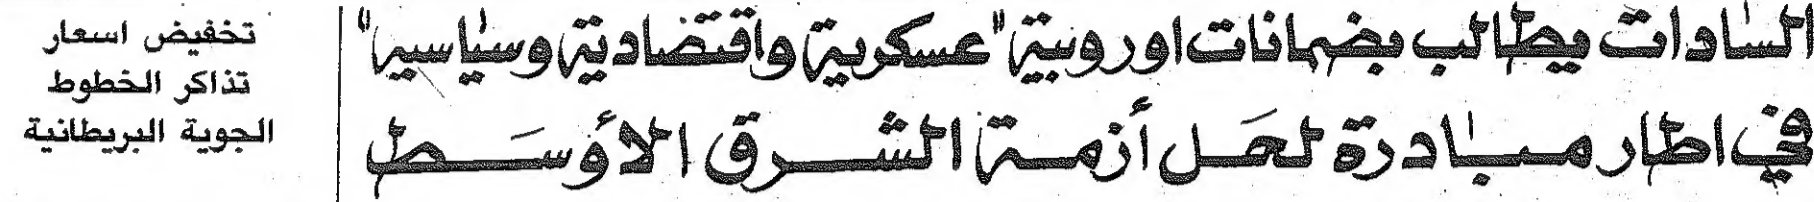 السادات يطالب بضمانات اوروبية "عسكرية واقتصادية وسياسية"
في اطار مبادرة لحَل أزمة الشرق الأوسَط
تخفيض اسعار
تذاكر الخطوط
الجوية البريطانية